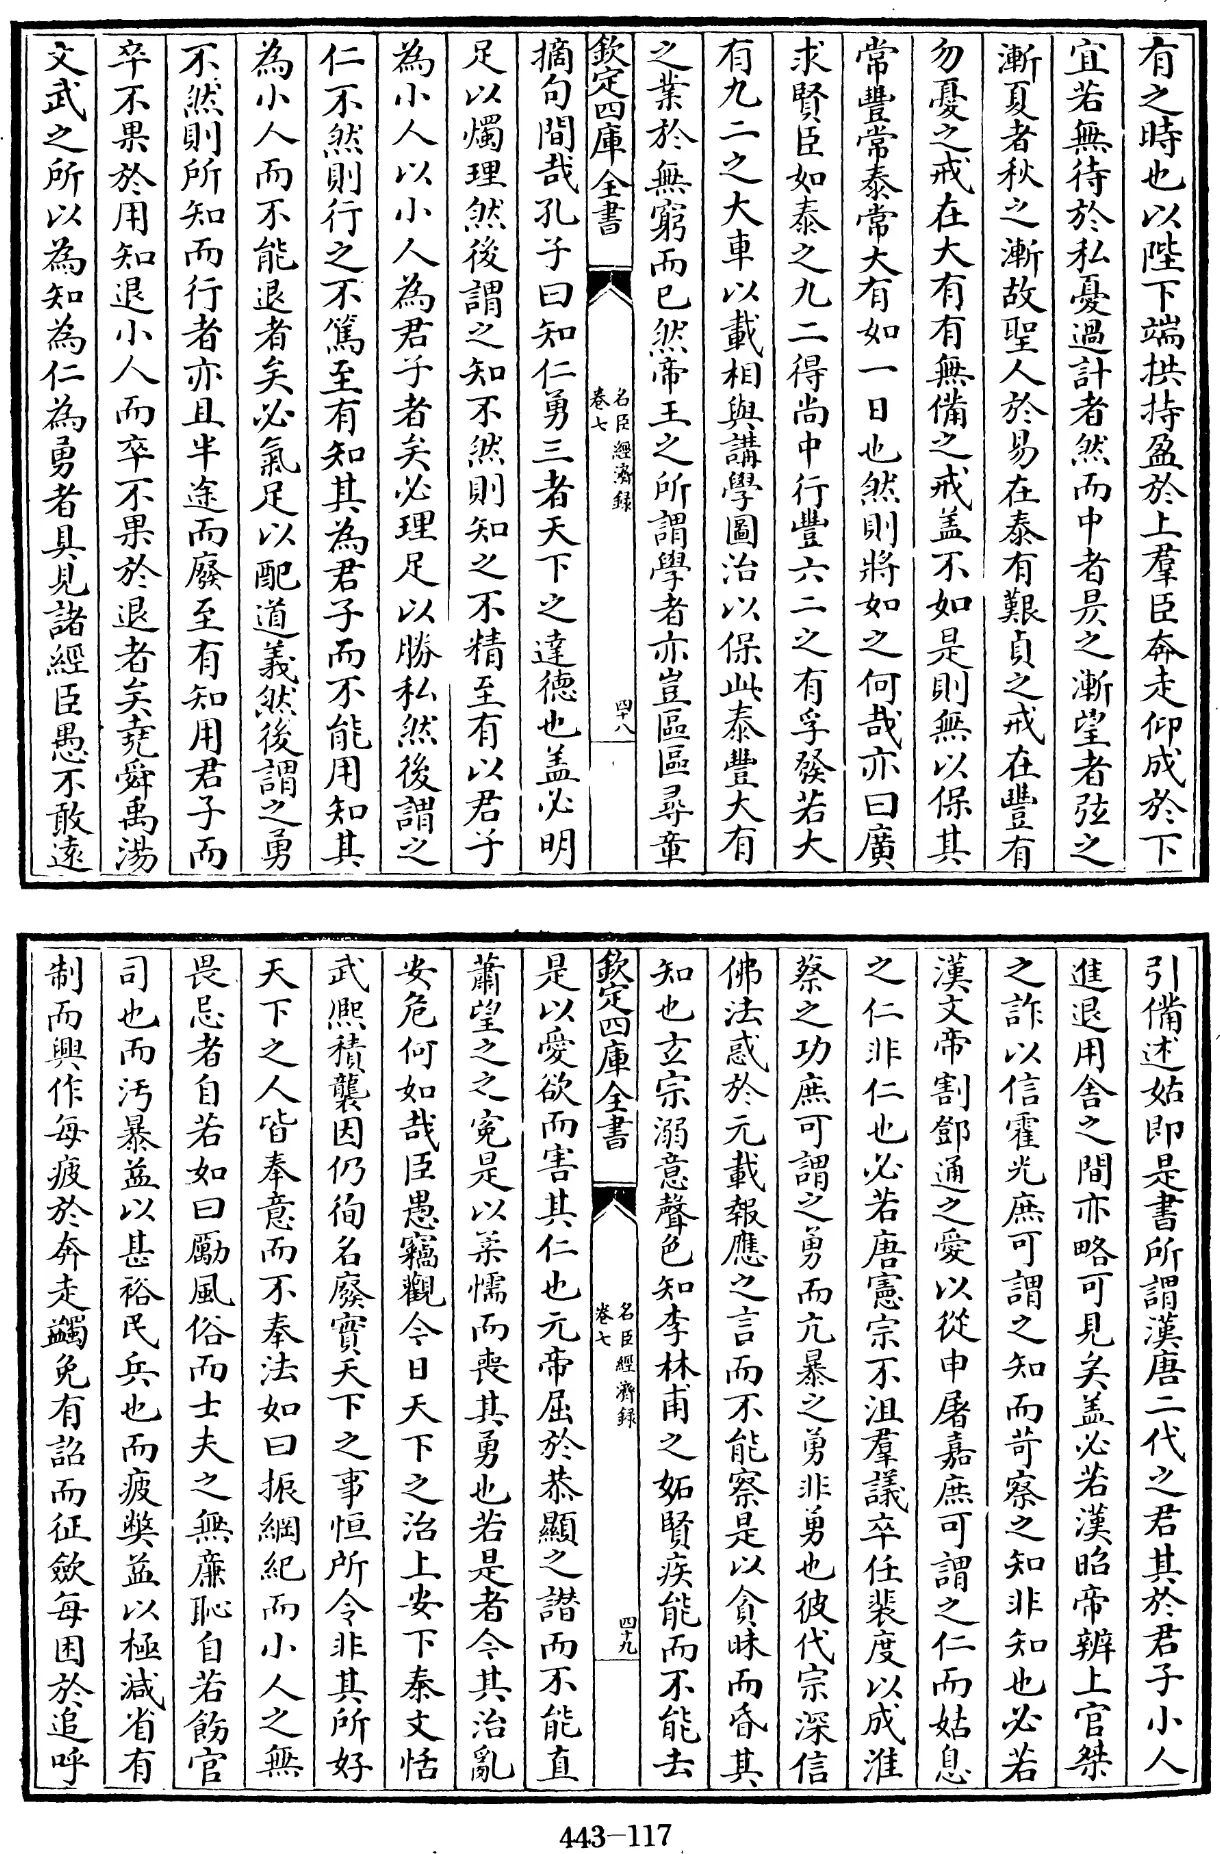 有之時也以陛下端拱持盈於上羣臣奔走仰成於下
宜若無待於私憂過計者然而中者昃之漸望者弦之
漸夏者秋之漸故聖人於易在泰有艱貞之戒在豐有
勿憂之戒在大有有無備之戒盖不如是則無以保其
常豐常泰常大有如一日也然則將如之何哉亦曰廣
求賢臣如泰之九二得尚中行豐六二之有孚發若大
有九二之大車以載相與講學圖治以保此泰豐大有
之業於無窮而已然帝王之所謂學者亦豈區區尋章
欽定四庫全書
名臣經濟録
卷七
四十八
摘句間哉孔子曰知仁勇三者天下之達德也盖必明
足以燭理然後謂之知不然則知之不精至有以君子
為小人以小人為君子者矣必理足以勝私然後謂之
仁不然則行之不篤至有知其為君子而不能用知其
為小人而不能退者矣必氣足以配道義然後謂之勇
不然則所知而行者亦且半途而廢至有知用君子而
卒不果於用知退小人而卒不果於退者矣堯舜禹湯
文武之所以為知為仁為勇者具見諸經臣愚不敢遠
引備述姑即是書所謂漢唐二代之君其於君子小人
進退用舎之間亦略可見矣盖必若漢昭帝辨上官桀
之詐以信霍光庶可謂之知而苛察之知非知也必若
漢文帝割鄧通之愛以從申屠嘉庶可謂之仁而姑息
之仁非仁也必若唐憲宗不沮羣議卒任裴度以成淮
蔡之功庶可謂之勇而亢暴之勇非勇也彼代宗深信
佛法惑於元載報應之言而不能察是以貪昧而昏其
知也玄宗溺意聲色知李林甫之妬賢疾能而不能去
欽定四庫全書
名臣經濟録
卷七
四十九
是以愛欲而害其仁也元帝屈於恭顯之譖而不能直
蕭望之之寃是以柔懦而喪其勇也若是者今其治亂
安危何如哉臣愚竊觀今日天下之治上安下泰文恬
武熈積襲因仍徇名廢實天下之事恒所令非其所好
天下之人皆奉意而不奉法如曰振綱紀而小人之無
畏忌者自若如曰勵風俗而士夫之無廉恥自若飭官
司也而汚暴益以甚裕民兵也而疲弊益以極減省有
制而興作每疲於奔走蠲免有詔而征斂每困於追呼
443-117